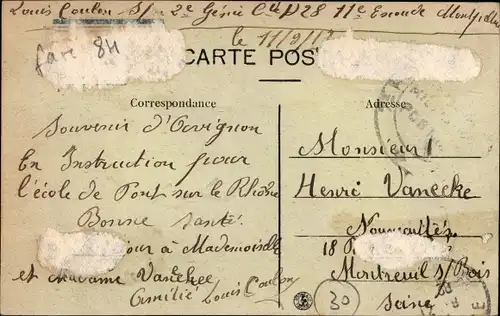 Louis Coulon S/ 2e Génie Cie D28 11e Escouade Montpellier
le 11/9/
fare 84
CARTE POS
Correspondance
Adresse
Souvenir d'Avignon
En Instruction pour
l'école de Pont sur le Rhône
Bonne Santé
à Mademoiselle
et Madame Vanéckee
Amitié Louis Coulon
Monsieur
Henri Vanecke
Nouveautés
18
Montreuil s/Bois
Seine
30